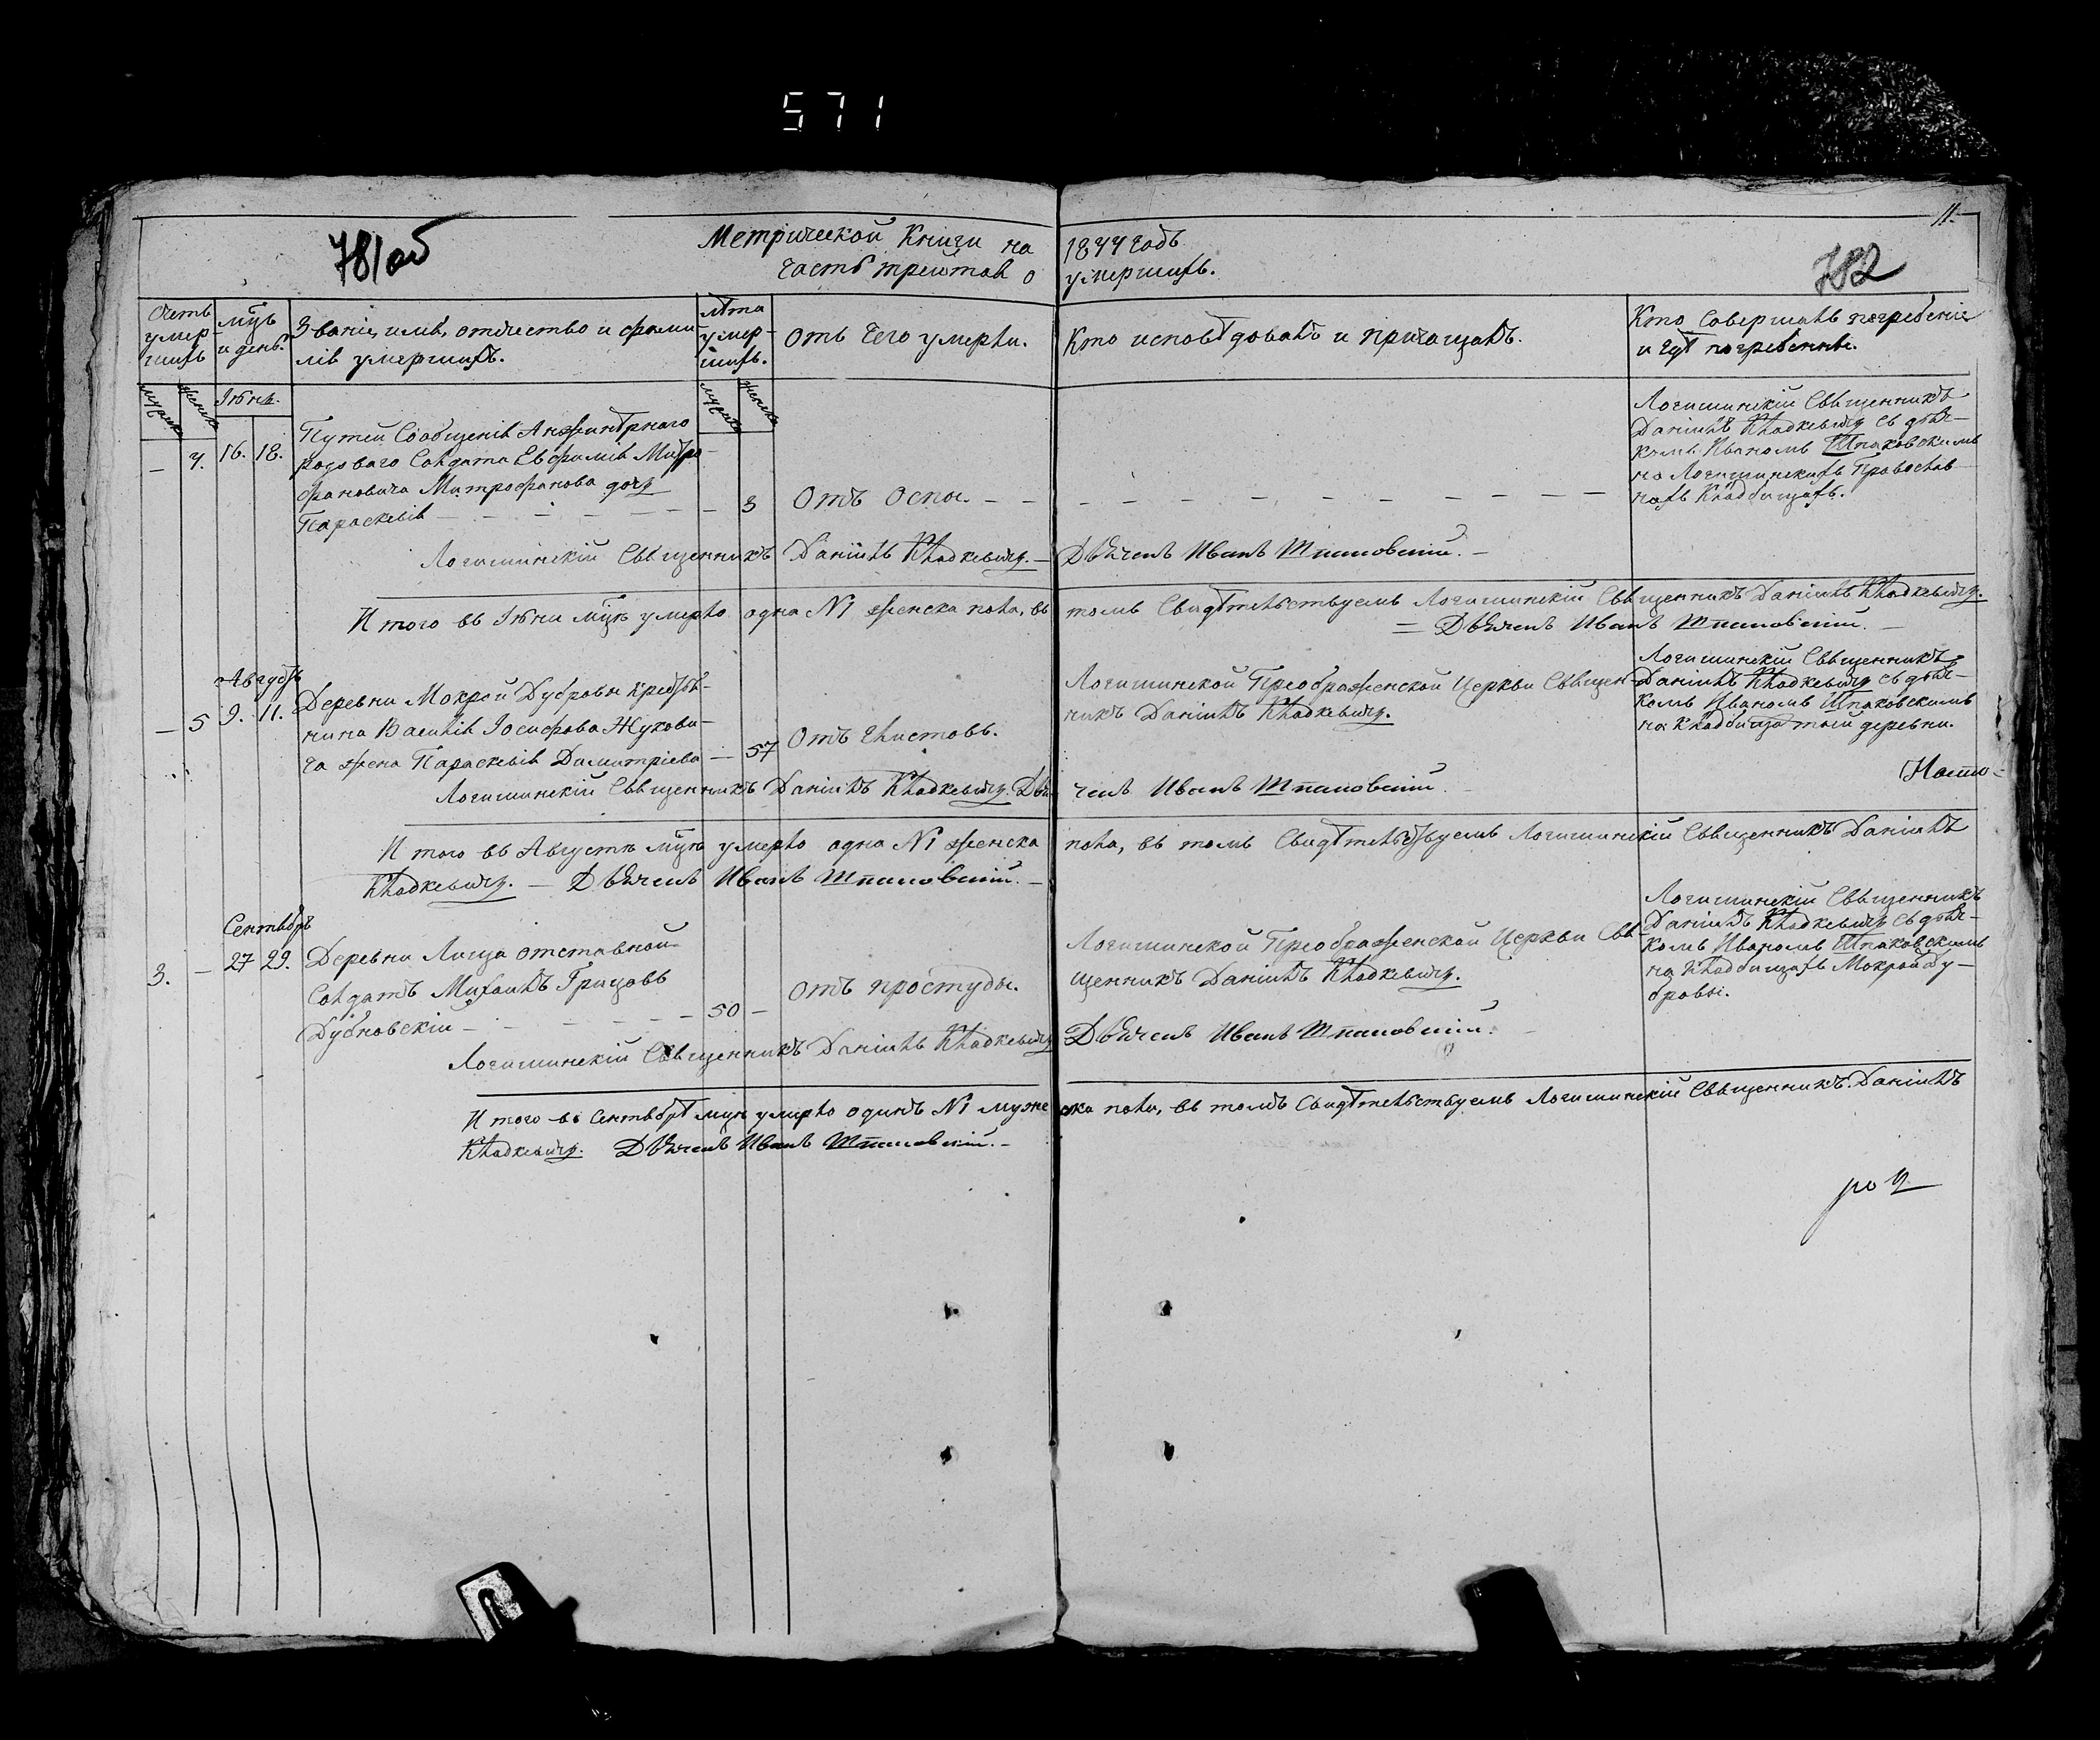 571
11.
781об
782
Метрической Книги на 1844 годъ
часть третія о умершихъ.
Счетъ умер-шихъ
мцъ и день.
Званіе, имя, отчество и фами-
лія умершихъ.
лѣта умер-шихъ.
Отъ чего умерли.
Кто исповѣдовалъ и причащалъ.
Кто совершалъ погребеніе
и гдѣ погребенны.
мужеска
женска
мужеска
женска
Іюня.
— 4. 16. 18.
Путей Сообщенія Анжинѣрнаго
рядоваго Солдата Евфимія Митро-
фановича Митрофанова дочь
Параскевія — — — — —
— 3
Отъ Оспы. — — — — — — — — —
Логишинскій Священникъ
Даніилъ Кладкевичъ съ дья-
комъ Иваномъ Шпаковскимъ
на Логишинскихъ Православ-
ныхъ Кладбищахъ.
Логишинскій Священникъ Даніилъ Кладкевичъ. — Дьячекъ Иванъ Шпаковскій. —
Итого въ Іюни мцѣ умерло одна №1 женска пола, въ томъ Свидѣтельствуемъ Логишинскій Священникъ Даніилъ Кладкевичъ.
= Дьячекъ Иванъ Шпаковскій. —
Августъ
— 5 9. 11.
Деревни Мокрой Дубровы Кресть-
янина Василія Іосифова Жукови-
ча жена Параскевія Димитріева
— 57
Отъ Глистовъ.
Логишинской Преображенской Церкви Священ-
никъ Даніилъ Кладкевичъ.
Логишинскій Священникъ
Даніилъ Кладкевичъ съ дья-
комъ Иваномъ Шпаковскимъ
на Кладбища той деревни.
Логишинскій Священникъ Даніилъ Кладкевичъ. Дья-чекъ Иванъ Шпаковскій.
Итого въ Августѣ мцѣ умерло одна №1 женска пола, въ томъ Свидѣтельствуемъ Логишинскій Священникъ Даніилъ
Кладкевичъ. — Дьячекъ Иванъ Шпаковскій. —
Сентябрь
3. — 27 29.
Деревни Лыща отставной
Солдатъ Михаилъ Грицовъ
Дубновскій — — — — —
50 —
Отъ простуды.
Логишинской Преображенской Церкви Свя-
щенникъ Даніилъ Кладкевичъ.
Логишинскій Священникъ
Даніилъ Кладкевичъ съ дья-
комъ Иваномъ Шпаковскимъ
на Кладбищахъ Мокрой Ду-
бровы.
Логишинскій Священникъ Даніилъ Кладкевичъ Дьячекъ Иванъ Шпаковскій.
Итого въ Сентябрѣ мцѣ умерло одинъ №1 мужеска пола, въ томъ Свидѣтельствуемъ Логишинскій Священникъ Даніилъ
Кладкевичъ. Дьячекъ Иванъ Шпаковскій. —